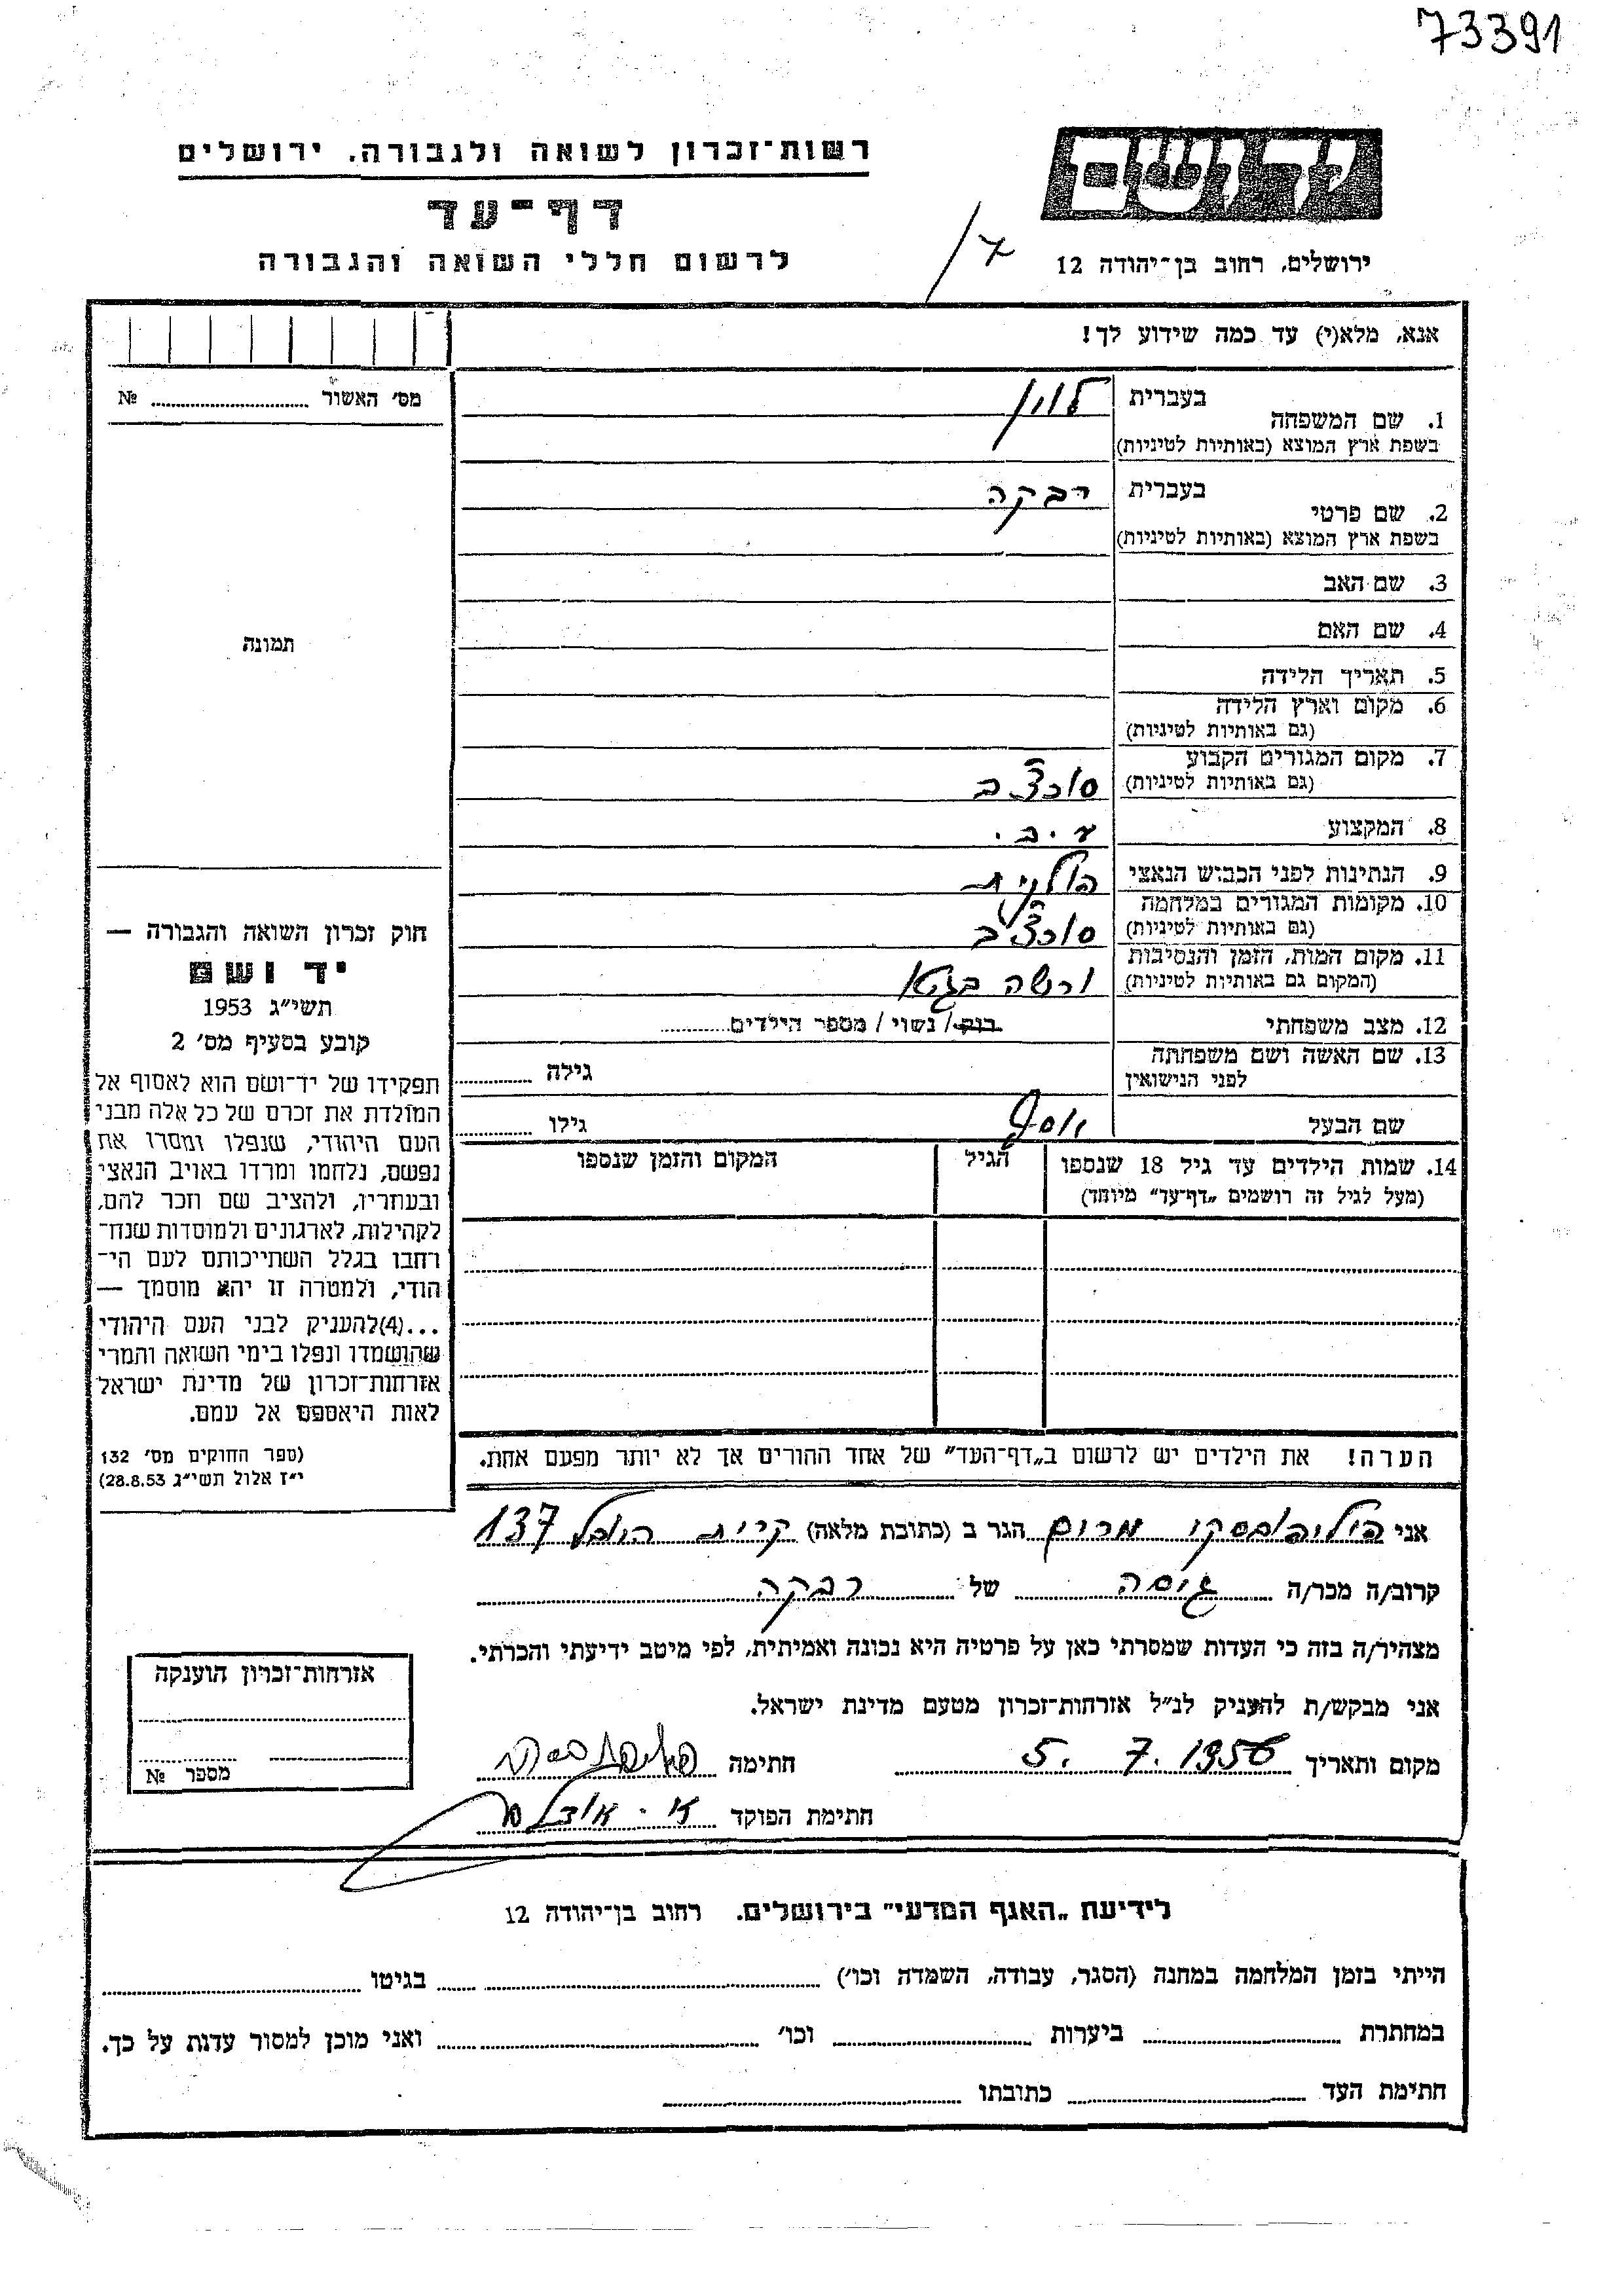 73391
רשות־זכרון לשואה ולגבורה. ירושלים
יד ושם
דף־עד
לרשום חללי השואה והגבורה
ירושלים, רחוב בן־יהודה 12
אנא, מלא(י) עד כמה שידוע לך!
מס׳ האשור № 
1. שם המשפחה
בעברית לוין
בשפת ארץ המוצא (באותיות לטיניות)
2. שם פרטי
בעברית רבקה
בשפת ארץ המוצא (באותיות לטיניות)
3. שם האב
4. שם האם
5. תאריך הלידה
6. מקום וארץ הלידה
(גם באותיות לטיניות)
7. מקום המגורים הקבוע
(גם באותיות לטיניות)
8. המקצוע
9. הנתינות לפני הכבוש הנאצי פולנית
10. מקומות המגורים במלחמה
(גם באותיות לטיניות)
11. מקום המות, הזמן והנסיבות
(המקום גם באותיות לטיניות)
ורשה בגטו
12. מצב משפחתי רוק / נשוי / מספר הילדים
13. שם האשה ושם משפחתה
לפני הנישואין
גילה
שם הבעל יוסף גילו
14. שמות הילדים עד גיל 18 שנספו
(מעל לגיל זה רושמים „דף־עד״ מיוחד)
הגיל
המקום והזמן שנספו
הערה! את הילדים יש לרשום ב„דף־העד״ של אחד ההורים אך לא יותר מפעם אחת.
תמונה
חוק זכרון השואה והגבורה —
יד ושם
תשי״ג 1953
קובע בסעיף מס׳ 2
תפקידו של יד־ושם הוא לאסוף אל
המולדת את זכרם של כל אלה מבני
העם היהודי, שנפלו ומסרו את
נפשם, נלחמו ומרדו באויב הנאצי
ובעוזריו, ולהציב שם וזכר להם,
לקהילות, לארגונים ולמוסדות שנח־
רחבו בגלל השתייכותם לעם הי־
הודי, ולמטרה זו יהא מוסמך —
...(4)להעניק לבני העם היהודי
שהושמדו ונפלו בימי השואה והמרי
אזרחות־זכרון של מדינת ישראל
לאות היאספם אל עמם.
(ספר החוקים מס׳ 132
י״ז אלול תשי״ג 28.8.53)
אני מרים הגר ב (כתובת מלאה) קרית היובל 137
קרוב/ה מכר/ה גיסה של רבקה
מצהיר/ה בזה כי העדות שמסרתי כאן על פרטיה היא נכונה ואמיתית, לפי מיטב ידיעתי והכרתי.
אני מבקש/ת להעניק לנ״ל אזרחות־זכרון מטעם מדינת ישראל.
מקום ותאריך 5. 7. 1956 חתימה
חתימת הפוקד
אזרחות־זכרון הוענקה
מספר №
לידיעת „האגף המדעי״ בירושלים. רחוב בן־יהודה 12
הייתי בזמן המלחמה במחנה (הסגר, עבודה, השמדה וכו׳) בגיטו
במחתרת ביערות וכו׳ ואני מוכן למסור עדות על כך.
חתימת העד כתובתו